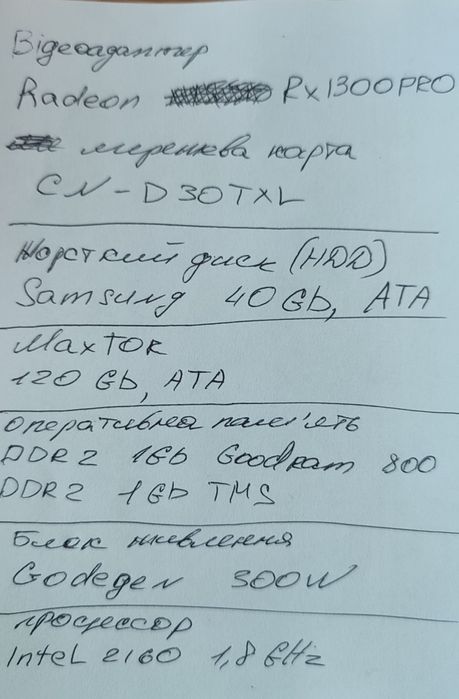 Відеоадаптер
Radeon Rx1300PRO
мережева карта
CN-D30TXL
Жорсткий диск (HDD)
Samsung 40Gb, ATA
Maxtor
120 Gb, ATA
Оперативна пам'ять
DDR2 1Gb Goodram 800
DDR2 1Gb TMS
Блок живлення
Godegen 300W
процессор
Intel 2160 1,8 GHz